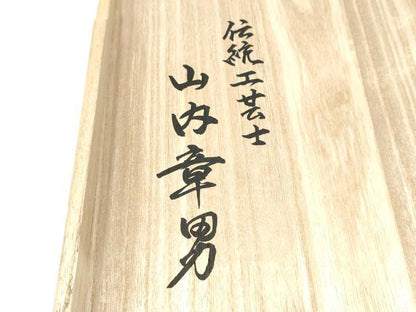 伝統工芸士
山内章男